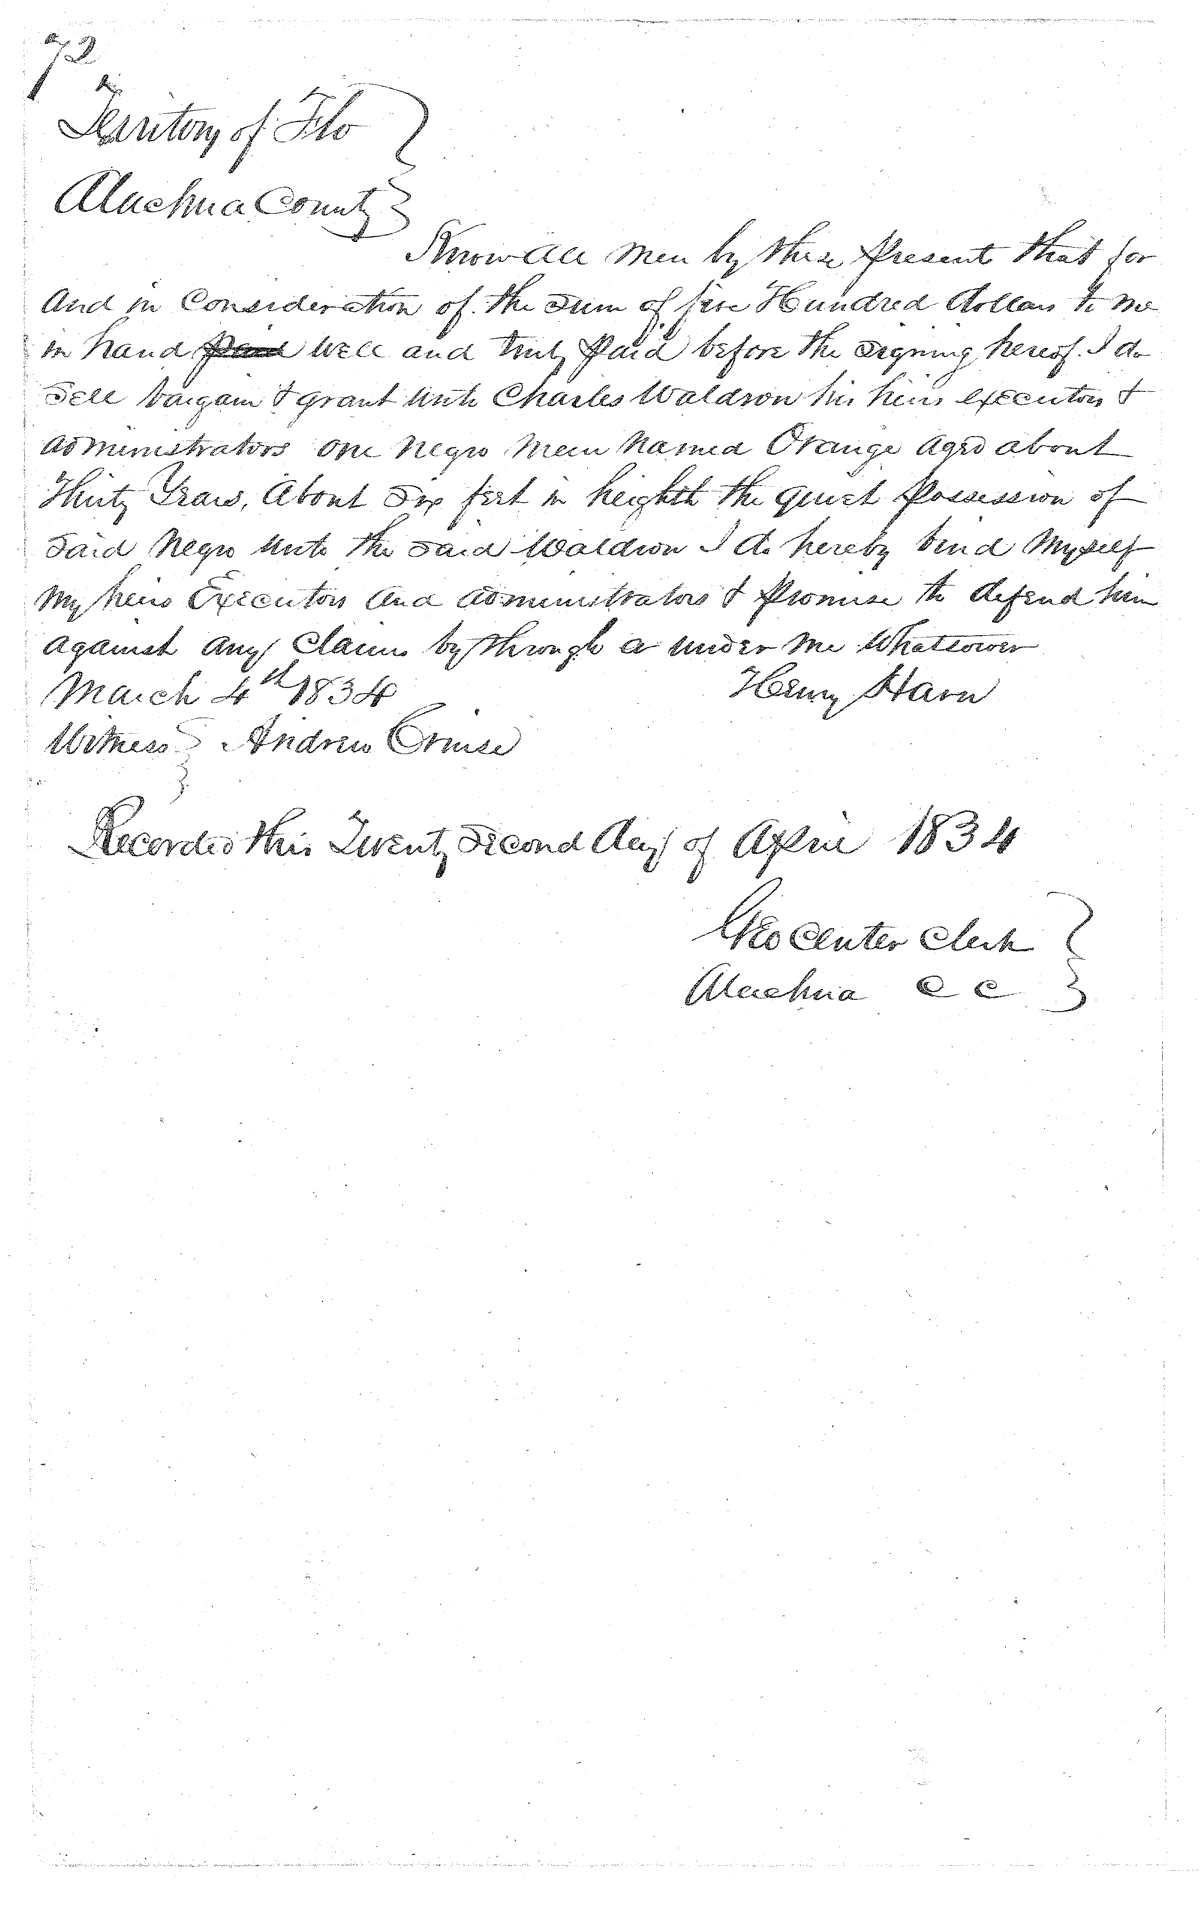 72
Territory of Flo
Alachua County
Know all men by these present that for
and in Consideration of the Sum of five Hundred dollars to me
in hand paid well and truly paid before the signing hereof. I do
Sell bargain & grant unto Charles Waldron his heirs executors &
administrators one negro man named Orange aged about
Thirty Years, About Six feet in heighth the quiet possession of
Said Negro unto the said Waldron I do hereby bind myself
my heirs Executors and administrators & promise to defend him
against any claims by through or under me whatsover
March 4th 1834 Henry Harn
Witness Andrew Cruise
Recorded this Twenty Second day of April 1834
Geo Center Clerk
Alachua C C